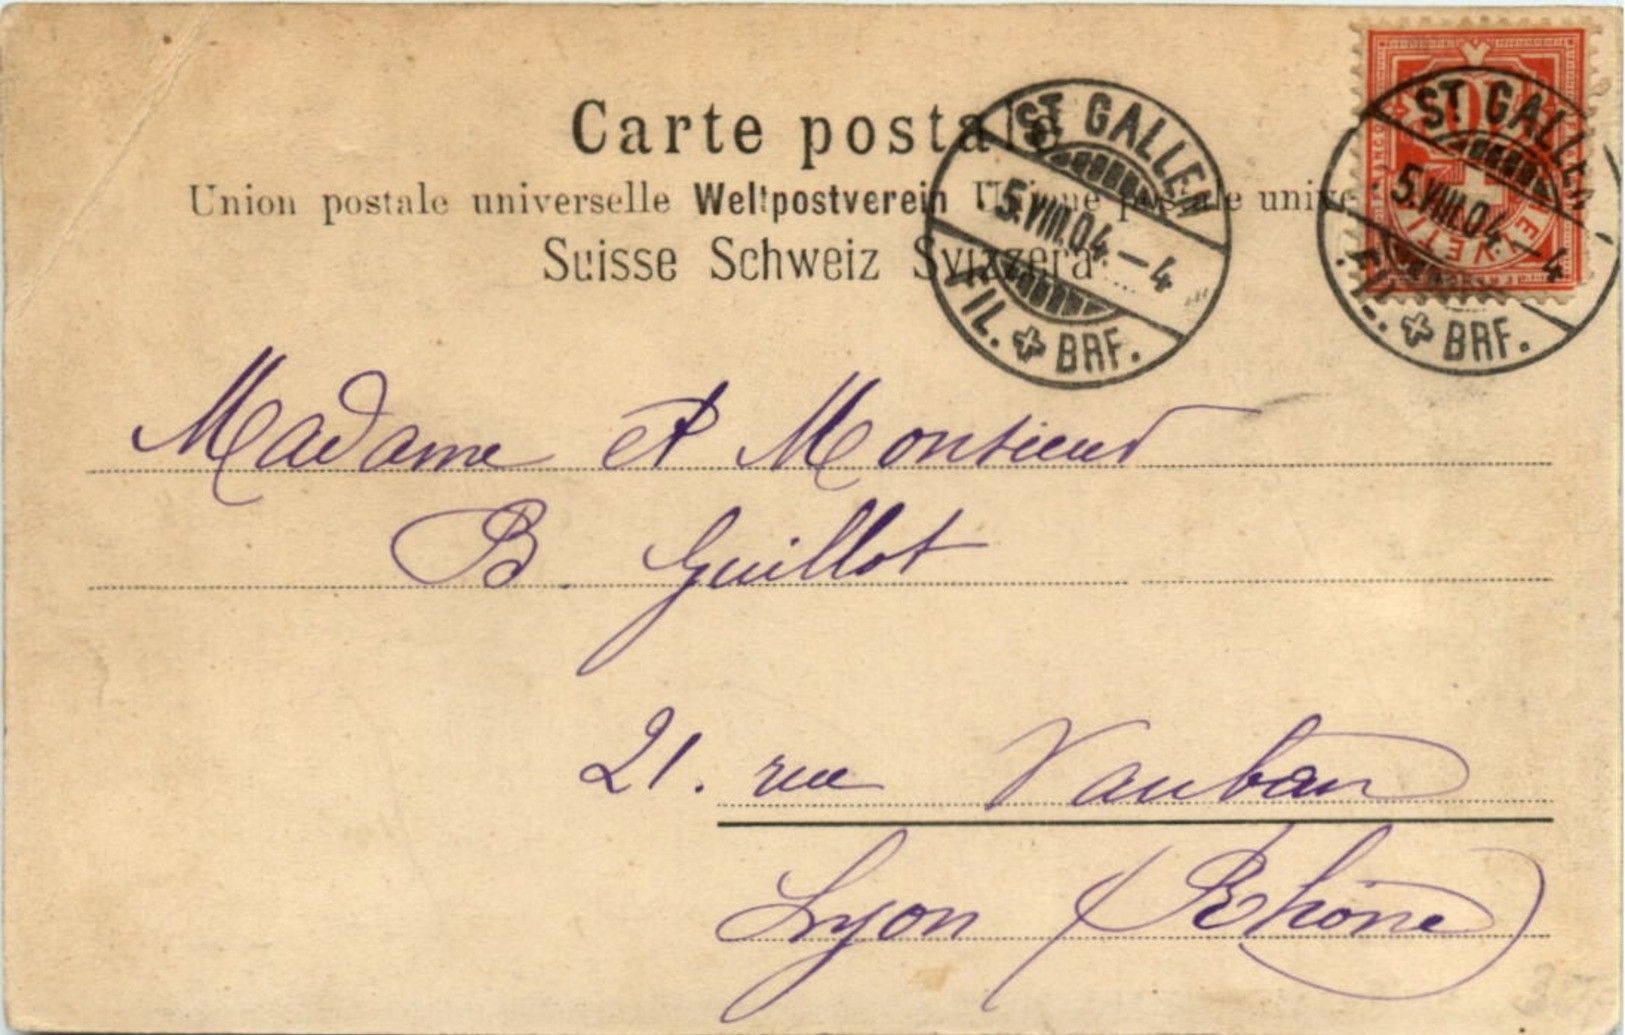 Carte postale
Union postale universelle Weltpostverein Unione postale unive
Suisse Schweiz Svizzera
ST GALLEN
5.VIII.04.–4
FIL. BRF.
10
HELVETIA
ST GALLEN
5.VIII.04.–4
FIL. BRF.
Madame et Monsieur
B. Guillot
21. rue Vauban
Lyon (Rhône)